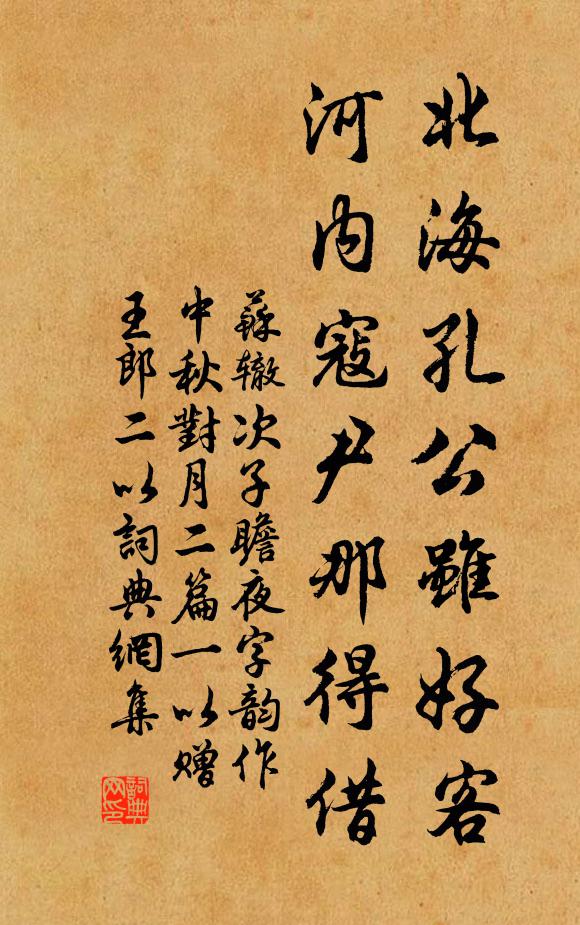 北海孔公雖好客
河内寇尹那得借
蘇辙次子瞻夜字韵作
中秋對月二篇一以赠
王郎二以詞典網集
詞典
网印